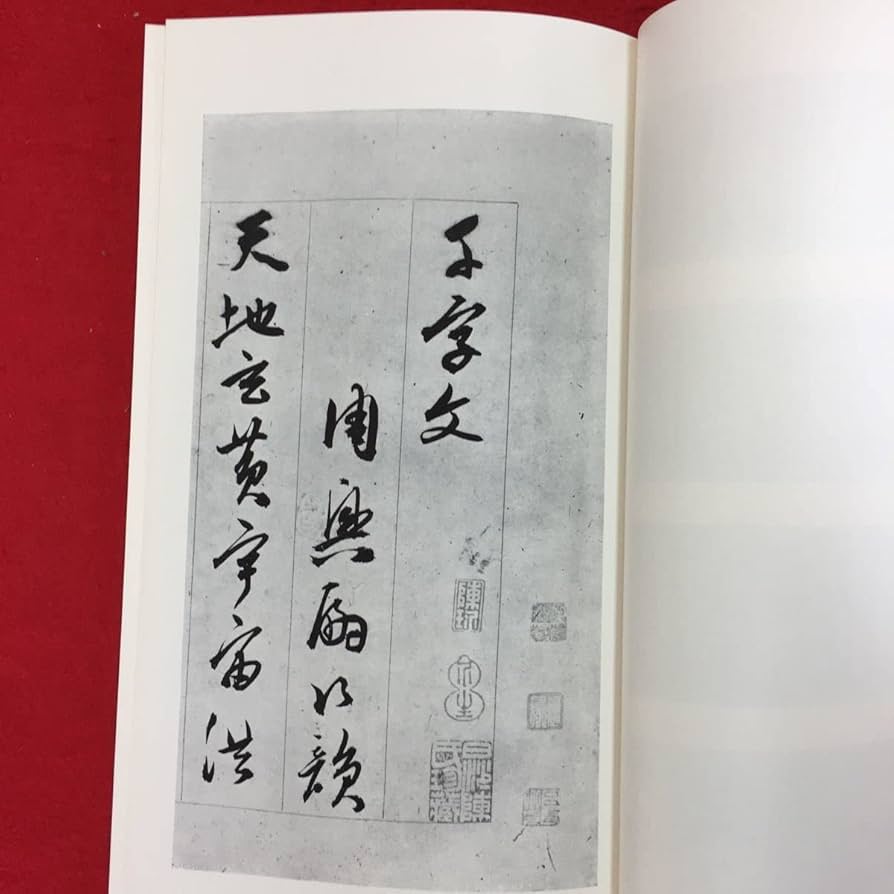 千字文
周興嗣次韻
天地玄黄宇宙洪
陳玩